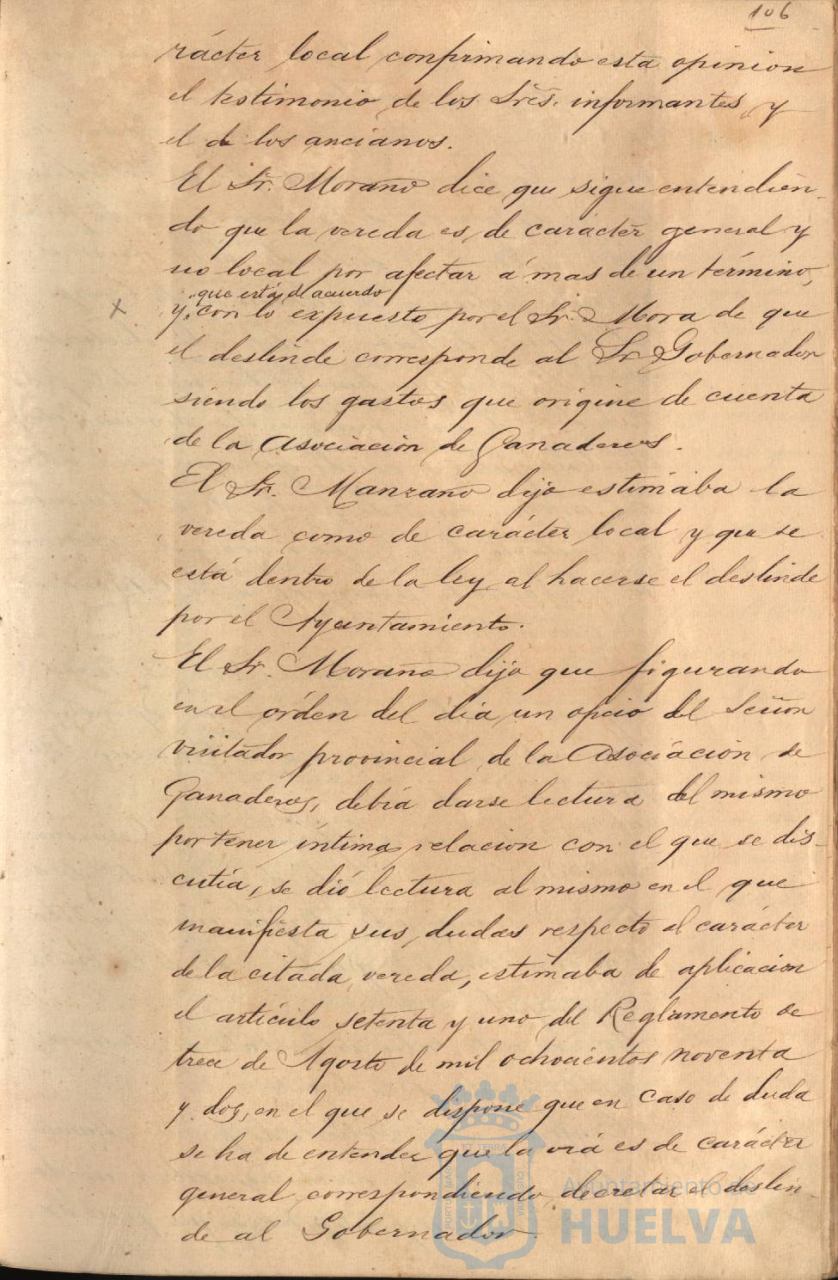 106
rácter local confirmando esta opinion
el testimonio de los Sres. informantes, y
el de los ancianos.
El Sr. Morano dice que sigue entendién-
do que la vereda es de carácter general y
no local por afectar á mas de un término,
que está de acuerdo
y con lo expuesto por el Sr. Mora de que
el deslinde corresponde al Sr. Gobernador
siendo los gastos que origine de cuenta
de la Asociación de Ganaderos.
El Sr. Manzano dijo estimába la
vereda como de carácter local y que se
está dentro de la ley al hacerse el deslinde
por el Ayuntamiento.
El Sr. Morano dijo que figurando
en el órden del dia un oficio del Señor
visitador provincial de la Asociación de
Ganaderos, debia darse lectura del mismo
por tener íntima relacion con el que se dis-
cutia, se dió lectura al mismo en el que
manifiesta sus dudas respecto al carácter
de la citada vereda, estimaba de aplicacion
el artículo setenta y uno del Reglamento de
trece de Agosto de mil ochocientos noventa
y dos, en el que se dispone que en caso de duda
se ha de entender que la via es de carácter
general correspondiendo decretar el deslin-
de al Gobernador.
Ayuntamiento de
HUELVA